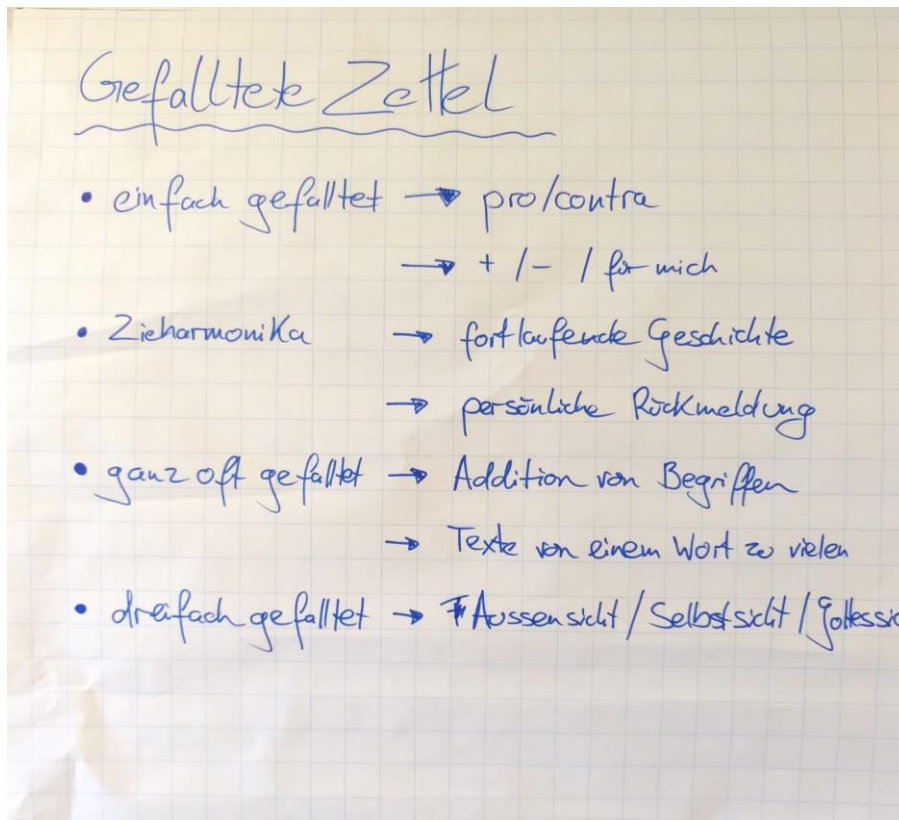 Gefalltete Zettel
• einfach gefalltet → pro/contra
→ + / - / für mich
• Zieharmonika → fortlaufende Geschichte
→ persönliche Rückmeldung
• ganz oft gefalltet → Addition von Begriffen
→ Texte von einem Wort zu vielen
• dreifach gefalltet → Aussensicht / Selbstsicht / Gottessic